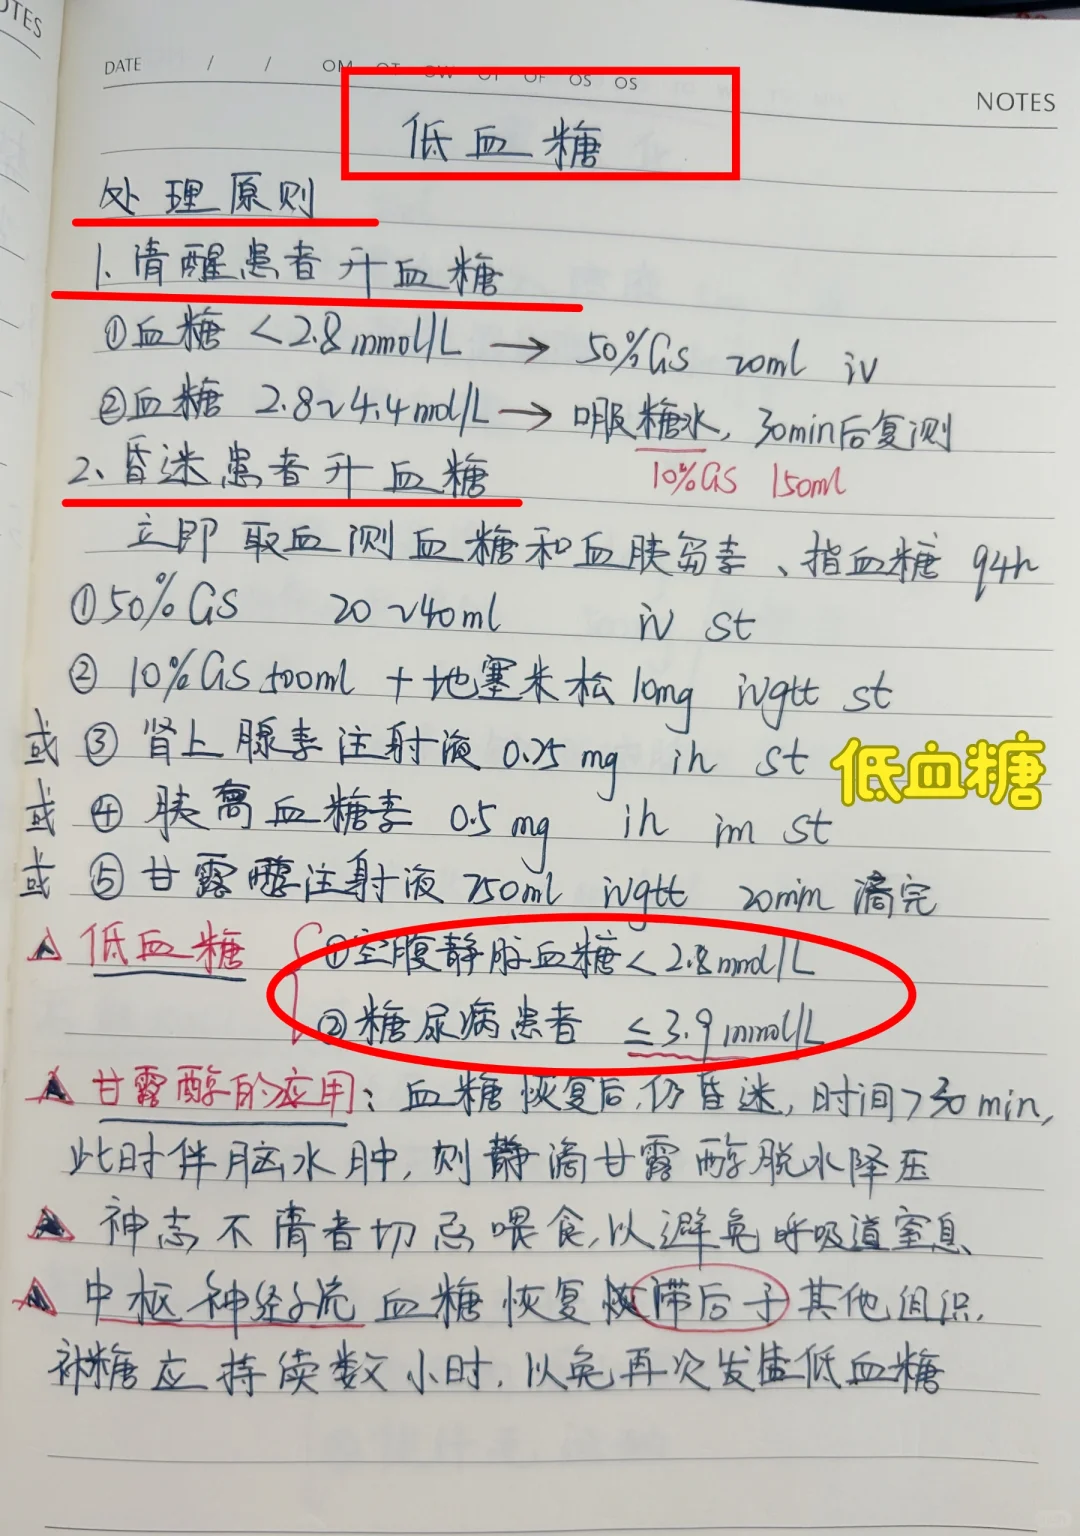 OTES
DATE / / OM OT OW OT OF OS OS
NOTES
低血糖
处理原则
1.清醒患者升血糖
①血糖 <2.8mmol/L → 50%GS 20ml iv
②血糖 2.8~4.4mol/L → 口服糖水,30min后复测
10%GS 150ml
2、昏迷患者升血糖
立即取血测血糖和血胰岛素、指血糖 q4h
①50%GS 20~40ml iv st
② 10%GS 500ml +地塞米松 10mg ivgtt st
或 ③ 肾上腺素注射液 0.25mg ih st
低血糖
或 ④ 胰高血糖素 0.5mg ih im st
或 ⑤ 甘露醇注射液 250ml ivgtt 20min 滴完
低血糖 ①空腹静脉血糖<2.8mmol/L
②糖尿病患者 ≤3.9mmol/L
甘露醇的应用:血糖恢复后,仍昏迷,时间>30min,
此时伴脑水肿,则静滴甘露醇脱水降压
神志不清者切忌喂食,以避免呼吸道窒息
中枢神经系统血糖恢复滞后于其他组织,
补糖应持续数小时,以免再次发生低血糖